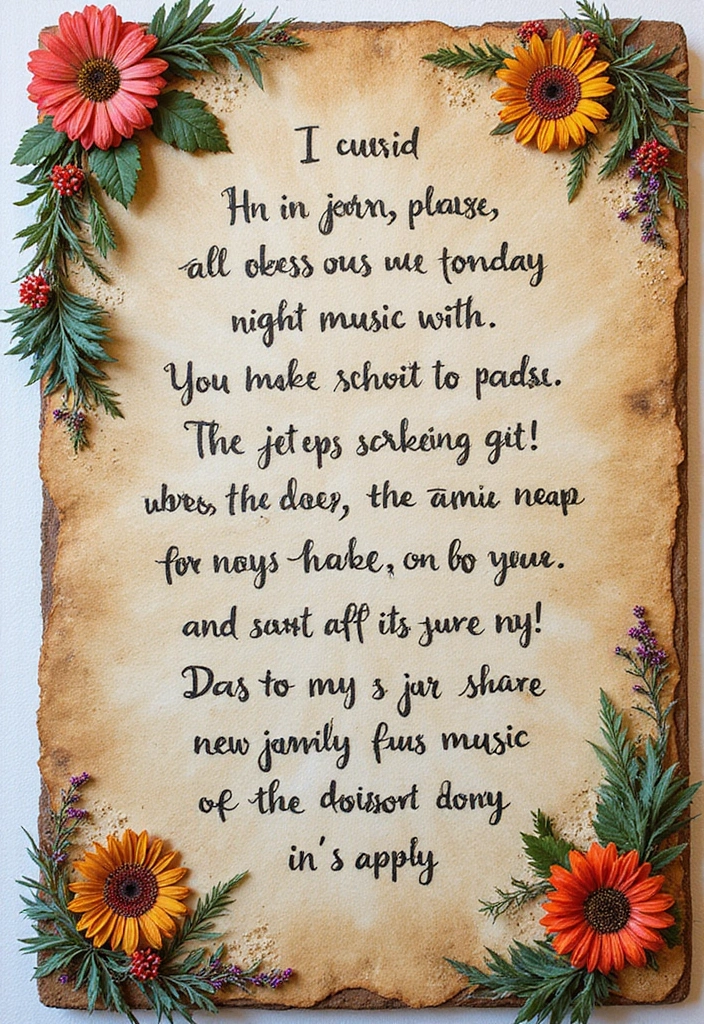 I cussid
Hn in jeørn, plause,
all obess ous we fonday
night music with.
You make schoit to padse.
The jeteps scrkeing git!
the doer, the amie neap
for noys hake, on bo your.
and sant aff its jure ny!
Das to my s jur share
new jamily fuus music
of the doissort dony
in's apply